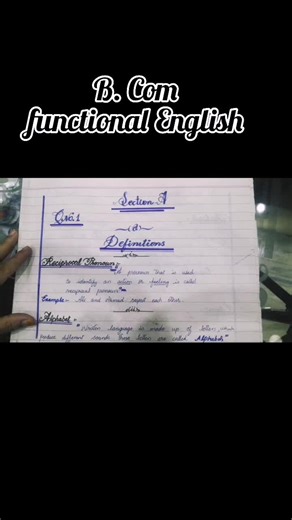 B. Com
functional English
Section A
Q no: 1
Definitions
Reciprocal Pronoun:-
"A pronoun that is used
to identify an action or feeling is called
reciprocal pronoun"
Example:- Ali and Ahmed respect each other.
Alphabet:-
"Written language is made up of letters which
produce different sounds these letters are called Alphabets"